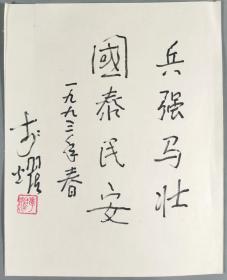 兵强马壮
國泰民安
一九九三年春
李耀